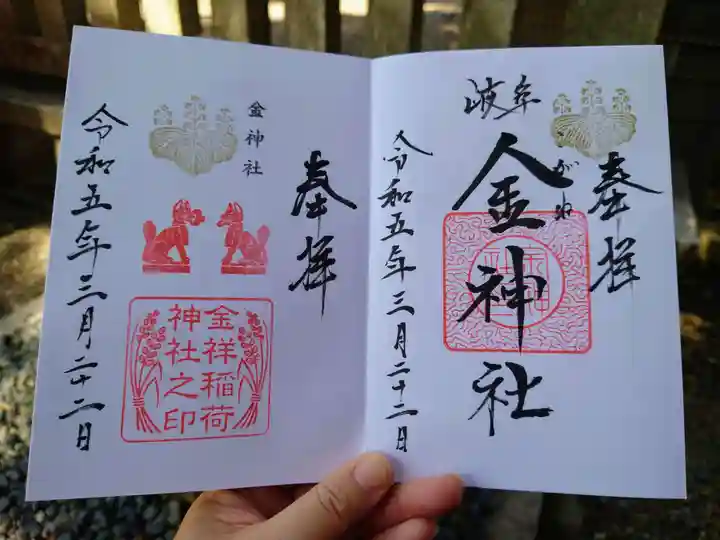 奉拝
岐阜
金神社
がね
令和五年三月二十二日
奉拝
金神社
金祥稲荷
神社之印
令和五年三月二十二日